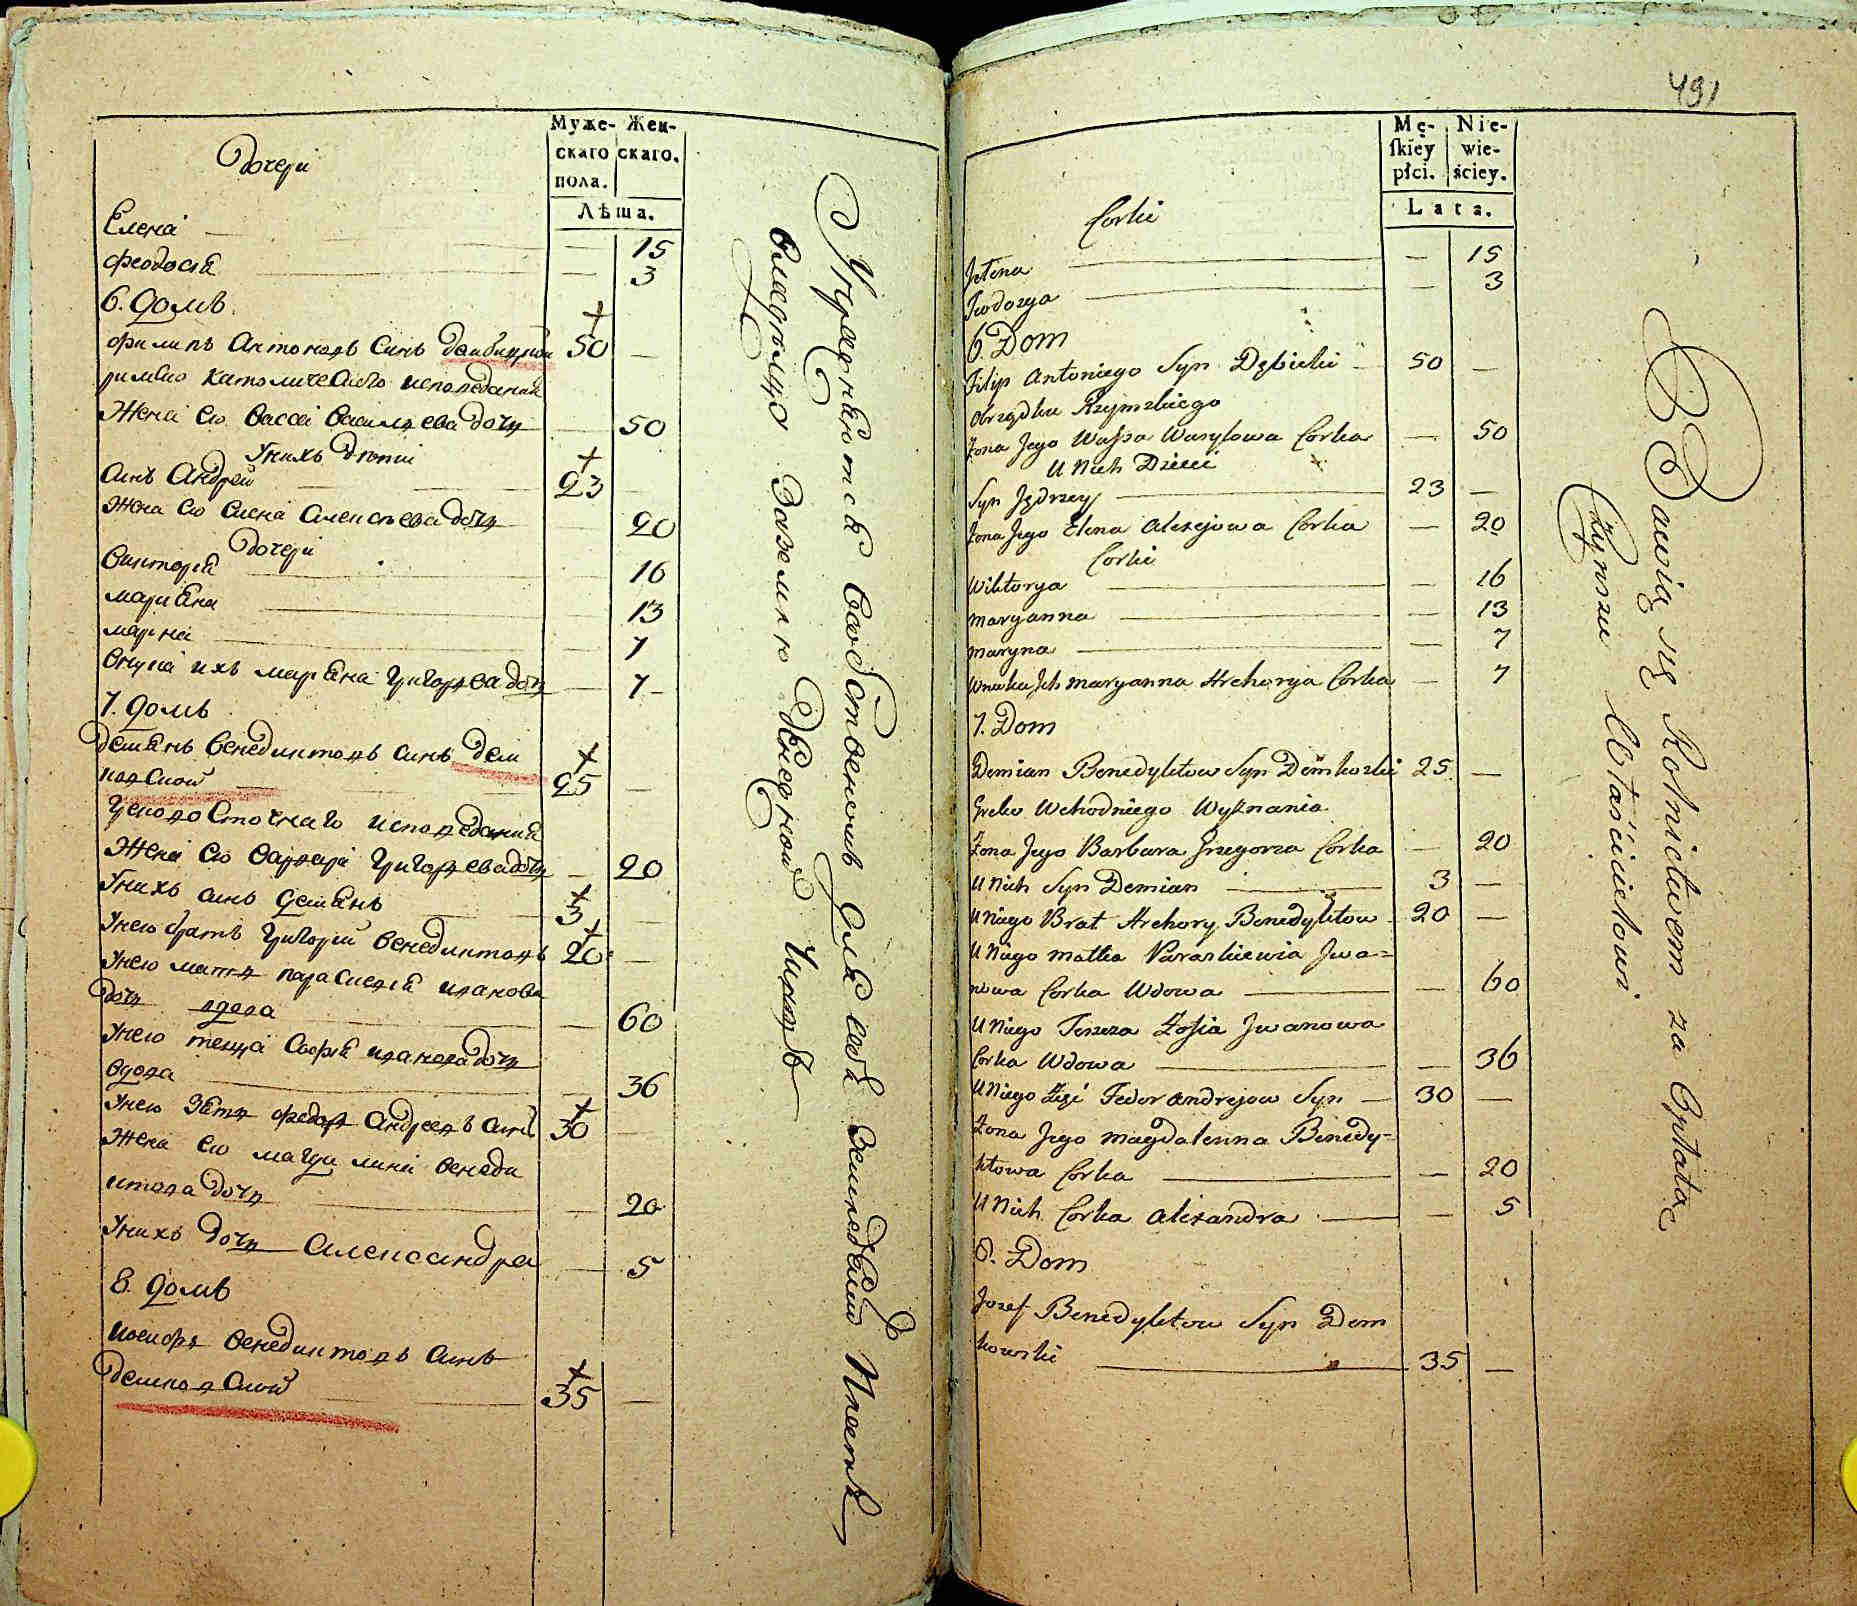 Муже- Жен-
скаго скаго.
пола.
Лѣта.
Дочери
Елена 15
Феодосія 3
6. Домъ
Филипъ Антоновъ Синъ Дембицкои 50
римско католическаго исповеданія
Жена ево Васса Васильева дочь 50
У нихъ дети
Синъ Андрей 23
Жена ево Елена Алексѣева дочь 20
Дочери
Викторія 16
Маріяна 13
Марина 7
Внука ихъ Маріяна Григорьева дочь 7
7. Домъ
Деміянъ Венедиктовъ синъ Дем
ковской 25
Грековосточнаго исповеданія
Жена ево Варвара Григорьева дочь 20
У нихъ синъ Деміянъ 3
У нево братъ Григорій Венедиктовъ 20
У нево мать Параскевія Иванова
дочь вдова 60
У нево теща Софія Иванова дочь
вдова 36
У нево зять Федоръ Андреевъ синъ 30
Жена ево Магдалина Венеди
ктова дочь 20
У нихъ дочь Александра 5
8. Домъ
Иосифъ Венедиктовъ синъ
Демковской 35
Упражняются въ собственномъ для себя земледелію Платя
владельцу за землю денежной чиншъ
491
Mę- Nie-
skiey wie-
płci. ściey.
Lata.
Corki
Jełena 15
Teodozya 3
6. Dom
Filip Antoniego Syn Dębicki 50
obrządku Rzymskiego
Żona Jego Wassa Wasylowa Corka 50
U Nich Dzieci
Syn Jędrzey 23
Żona Jego Elena Alexejowa Corka 20
Corki
Wiktorya 16
Maryanna 13
Maryna 7
Wnuka Ich Maryanna Hrehorya Corka 7
7. Dom
Demian Benedyktow Syn Demkowski 25
Greko Wchodniego Wyznania
Żona Jego Barbara Grzegorza Corka 20
U Nich Syn Demian 3
U Niego Brat Hrehory Benedyktow 20
U Niego Matka Paraskiewia Jwa=
nowa Corka Wdowa 60
U Niego Teszcza Zofia Jwanowa
Corka Wdowa 36
U Niego Zięć Fedor Andrejow Syn 30
Żona Jego Magdalenna Benedy=
ktowa Corka 20
U Nich Corka Alexandra 5
8. Dom
Jozef Benedyktow Syn Dem
kowski 35
Bawią się Rolnictwem za Opłatą
Czynszu Właścicielowi